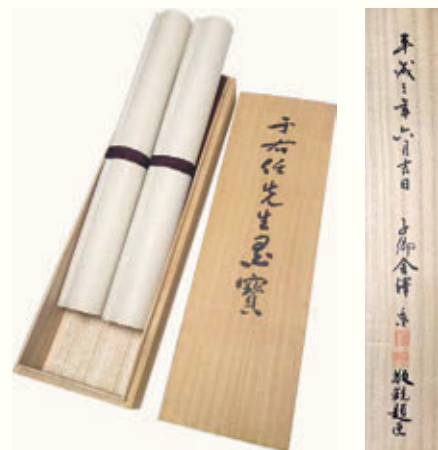 于右任先生墨寶
平成三年六月吉日 子卿金澤泰 敬観題